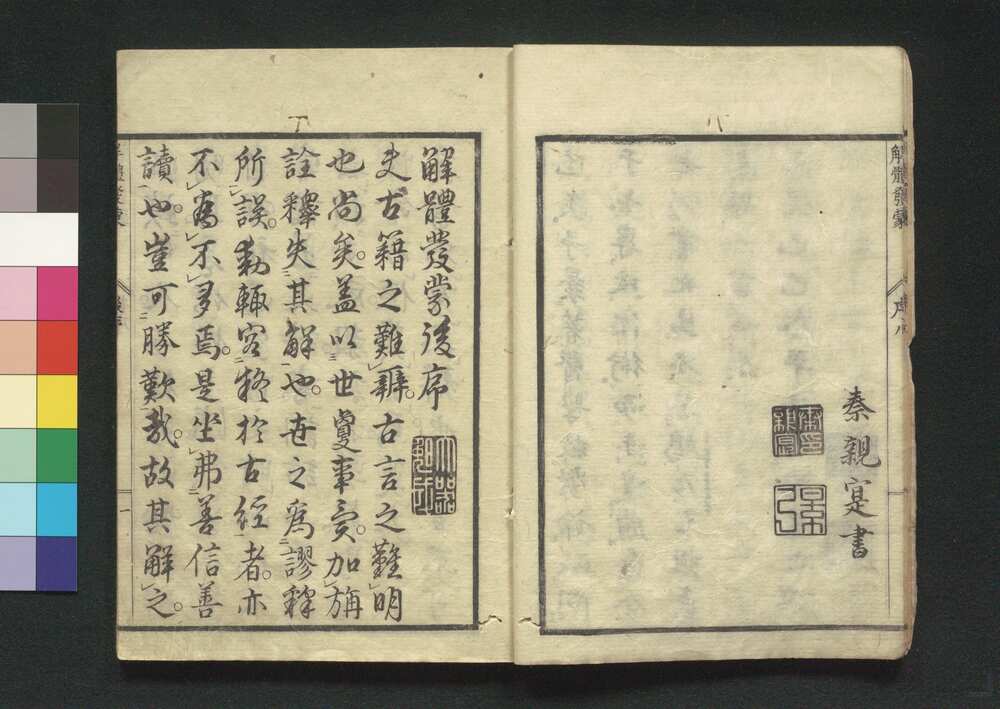 解體發蒙
序
八
秦親寔書
解體發蒙後序
夫古籍之難辨。古言之難明
也尚矣。蓋以世變事異。加旃
詮釋失其解也。世之爲謬釋
所誤。動輒容務於古經者。亦
不爲不多焉。是坐弗善信善
讀也。豈可勝歎哉。故其解之。
一